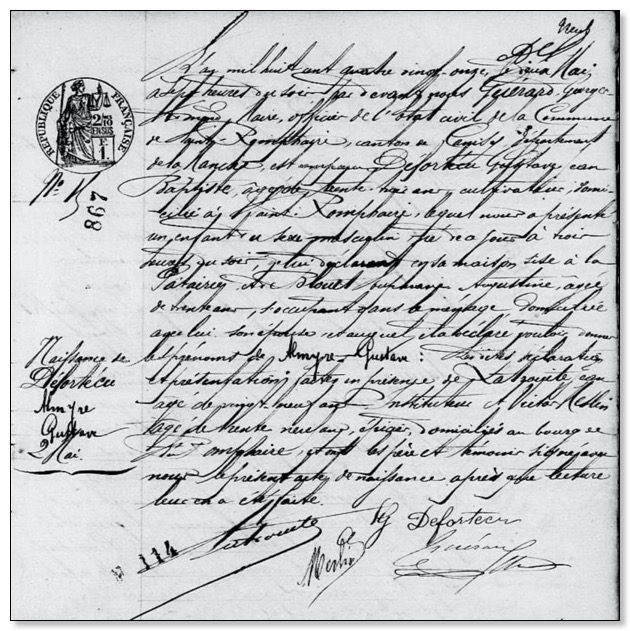 Neuf
L'an mil huit cent quatre vingt-onze, le deux Mai
à sept heures du soir par devant nous Guérard Georges
Maire, officier de l'état civil de la Commune
de Saint-Romphaire, canton de Canisy Département
de la Manche, est comparu Defortécu Gustave Jean
Baptiste, âgé de trente ans, cultivateur, domi-
cilié à Saint-Romphaire, lequel nous a présenté
un enfant du sexe masculin né ce jour à trois
heures du soir, de lui déclarant en sa maison sise à la
et de Blouet Augustine âgée
de trente ans, s'occupant dans le ménage domiciliée
avec lui son épouse et auquel il a déclaré vouloir donner
les prénoms de Almyre-Gustave : Les dites déclaration
et présentation faites en présence de Jean
âgé de vingt neuf ans Instituteur et Victor Meslin
âgé de trente neuf ans, domiciliés au bourg de
St Romphaire, et ont les père et témoins signé avec
nous le présent acte de naissance après que lecture
leur en a été faite.
RÉPUBLIQUE FRANÇAISE
No 15
867
Naissance de
Defortécu
Almyre
Gustave
2 Mai.
114
G Defortécu
Meslin
Guérard